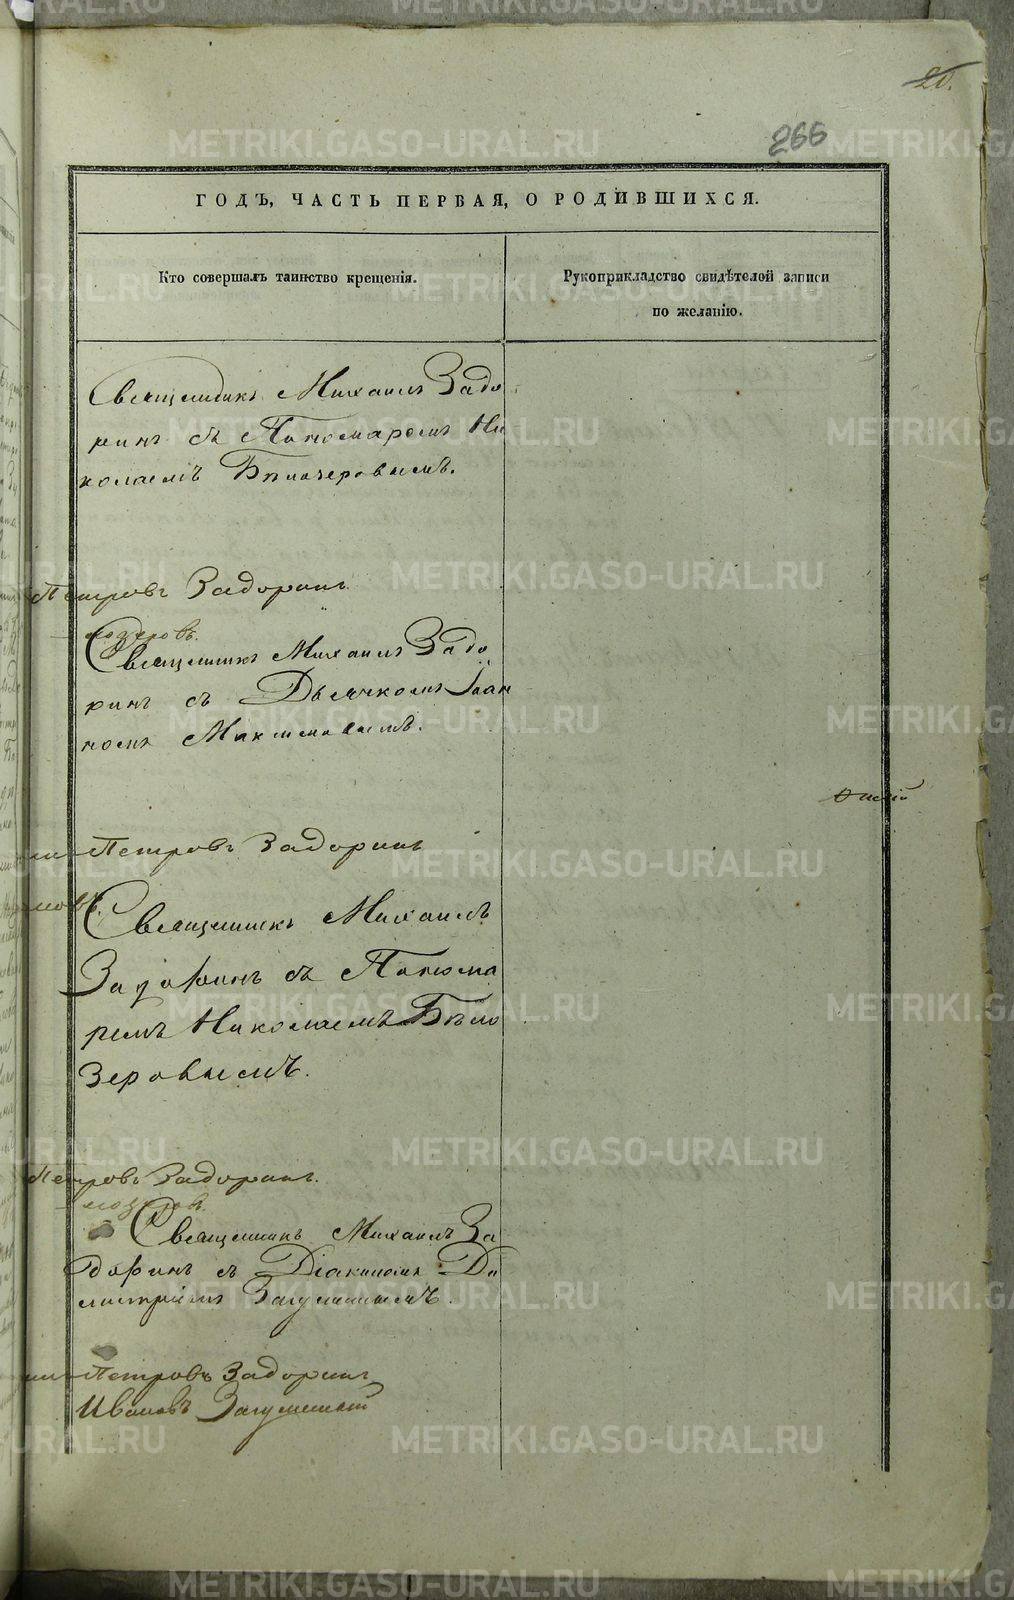 20.
266
ГОДЪ, ЧАСТЬ ПЕРВАЯ, О РОДИВШИХСЯ.
Кто совершалъ таинство крещенія.
Рукоприкладство свидѣтелей записи
по желанію.
Священникъ Михаилъ Задо
ринъ съ Пономаремъ Ни
колаемъ Бѣлозеровымъ.
Петровъ Задоринъ
лозеровъ.
Священникъ Михаилъ Задо
ринъ съ Дьячкомъ Іоан
номъ Максимовымъ.
Петровъ Задоринъ
мовъ.
Священникъ Михаилъ
Задоринъ съ Понома
ремъ Николаемъ Бѣло
зеровымъ.
Петровъ Задоринъ.
лозеровъ.
Священникъ Михаилъ За
доринъ съ Діакономъ Ди
митріемъ Загуменнымъ.
Петровъ Задоринъ
Ивановъ Загуменный
METRIKI.GASO-URAL.RU